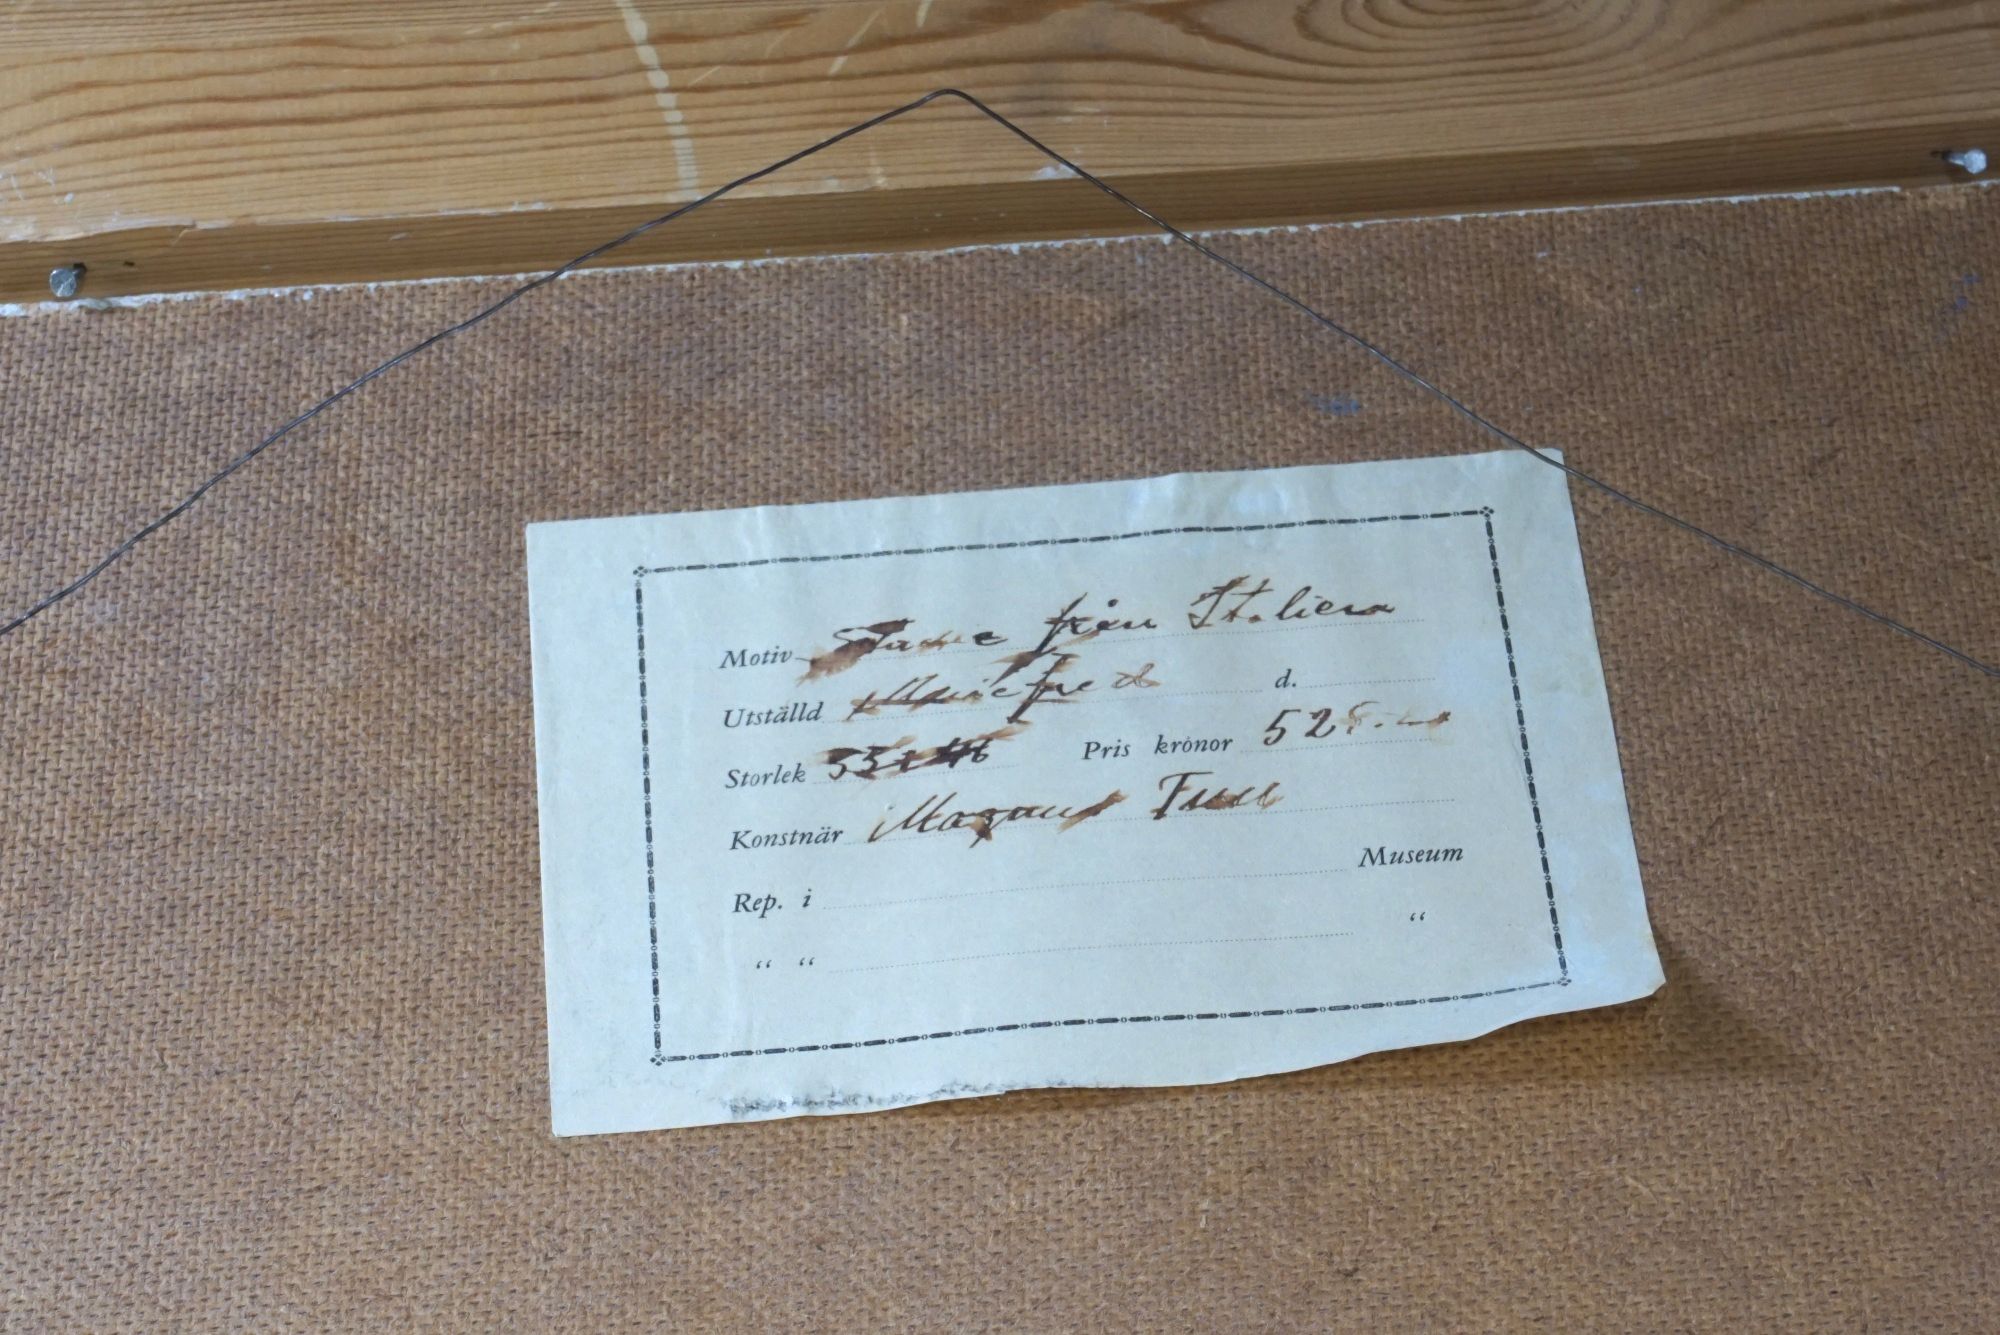 Motiv från Italien
Utställd d.
Storlek 55x46 Pris krönor 525.-
Konstnär Magnus
Rep. i Museum
“ “ “